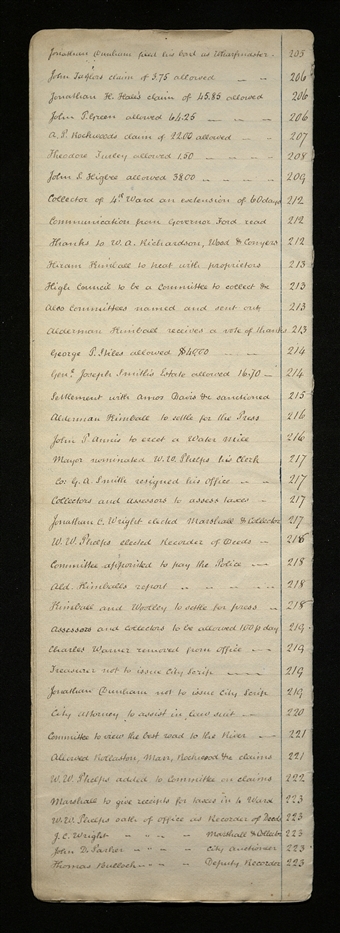 Jonathan Dunham filed his bond as Wharfmaster - 205
John Taylors claim of 3.75 allowed — — 206
Jonathan H. Hale's claim of 45.85 allowed 206
John P. Green allowed 64.25 — — — 206
A. P. Rockwoods claim of 22.00 allowed — 207
Theodore Turley allowed 1.50 — — — 208
John S. Higbee allowed 38.00 — — — 209
Collector of 4th Ward an extension of 60 days 212
Communication from Governor Ford read 212
Thanks to W. A. Richardson, Wood & Conyers 212
Hiram Kimball to treat with proprietors 213
High Council to be a Committee to collect &c 213
Also Committees named and sent out 213
Alderman Kimball receives a vote of thanks 213
George P. Stiles allowed $40.00 — — — 214
Genl Joseph Smith's Estate allowed 16.70 — 214
Settlement with Amos Davis &c sanctioned 215
Alderman Kimball to settle for the Press 216
John P. Annis to erect a Water Mill 216
Mayor nominated W. W. Phelps his Clerk 217
Co: G. A. Smith resigned his office — — 217
Collectors and Assessors to assess taxes — 217
Jonathan C. Wright elected Marshall & Collector 217
W. W. Phelps elected Recorder of Deeds — 218
Committee appointed to pay the Police — — 218
Ald. Kimballs report — — — — 218
Kimball and Woolley to settle for press — 218
Assessors and Collectors to be allowed 100 p day 219
Charles Warner removed from office — — 219
Treasurer not to issue City Scrip — — 219
Jonathan Dunham not to issue City Scrip 219
City Attorney to assist in law suit — — 220
Committee to view the best road to the River — 221
Allowed Rollaston, Marr, Rockwood &c claims 221
W. W. Phelps added to Committee on claims 222
Marshall to give receipts for taxes in 4 Ward 223
W. W. Phelps oath of office as Recorder of Deeds 223
J. C. Wright — " " — Marshall & Collector 223
John D. Parker — " " — City Auctioneer 223
Thomas Bullock — " " — Deputy Recorder 223